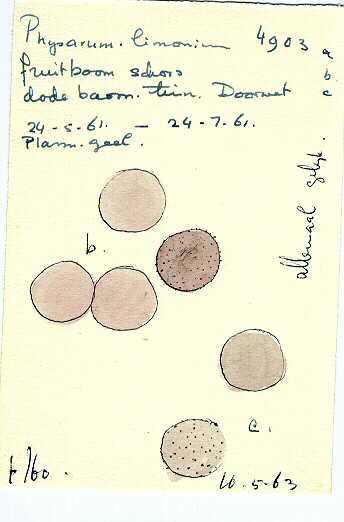 Physarum. limonium 4903 a
fruitboom schors b
dode boom. tuin. Doorwet c
24-5-61. — 24-7-61.
Plasm. geel.
allemaal gelijk.
b.
c.
10.5-63